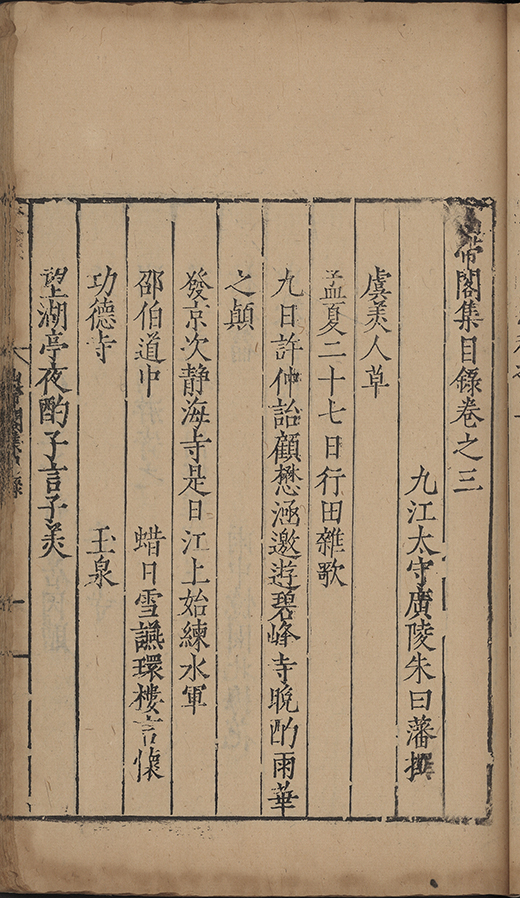 山帶閣集目錄卷之三
九江太守廣陵朱曰藩撰
虞美人草
孟夏二十七日行田雜歌
九日許仲詒顧懋涵邀遊碧峰寺晚酌雨華
之顛
發京次靜海寺是日江上始練水軍
邵伯道中　蜡日雪讌環樓言懷
功德寺　玉泉
望湖亭夜酌子言子美